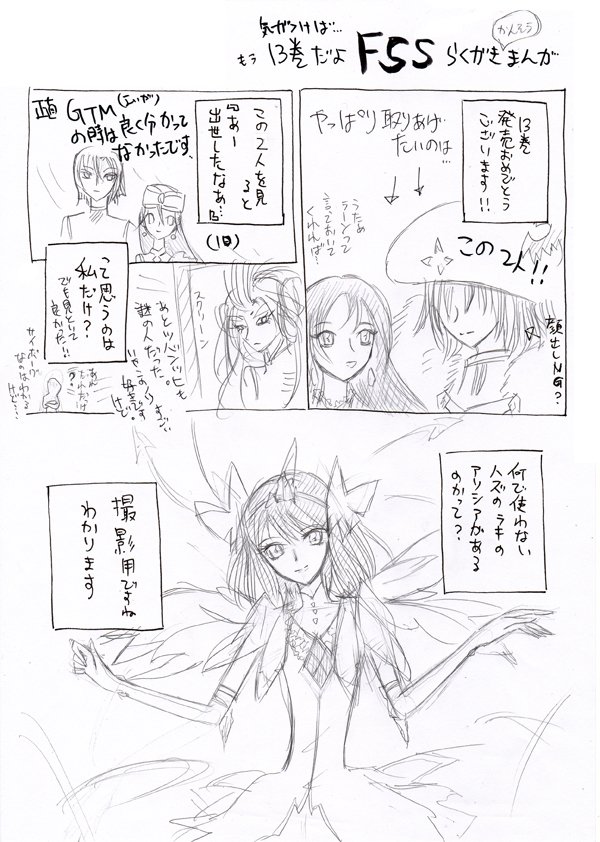 気がつけば…
もう13巻だよ FSS らくがきまんが
かんそう
13巻
発売おめでとう
ございます!!
やっぱり取りあげ
たいのは…
この2人!!
顔出しNG?
うため
って
言っておいて
くれれば?
正直GTM(エイガ)
の時は良く分かって
なかったです。
この2人を見
ると
『あー
出世したなぁ…』
って思うのは
私だけ?
でも見といて
良かった!!
スクーン
あとツバンツヒも
謎の人だった。
いや、すごい
好きです
けど。
あん
だれだっけ
?
サイボーグ
なのはわかる
けど…?
何で使わない
ハズのラキの
アリシアがある
のかって?
撮影用ですね
わかります